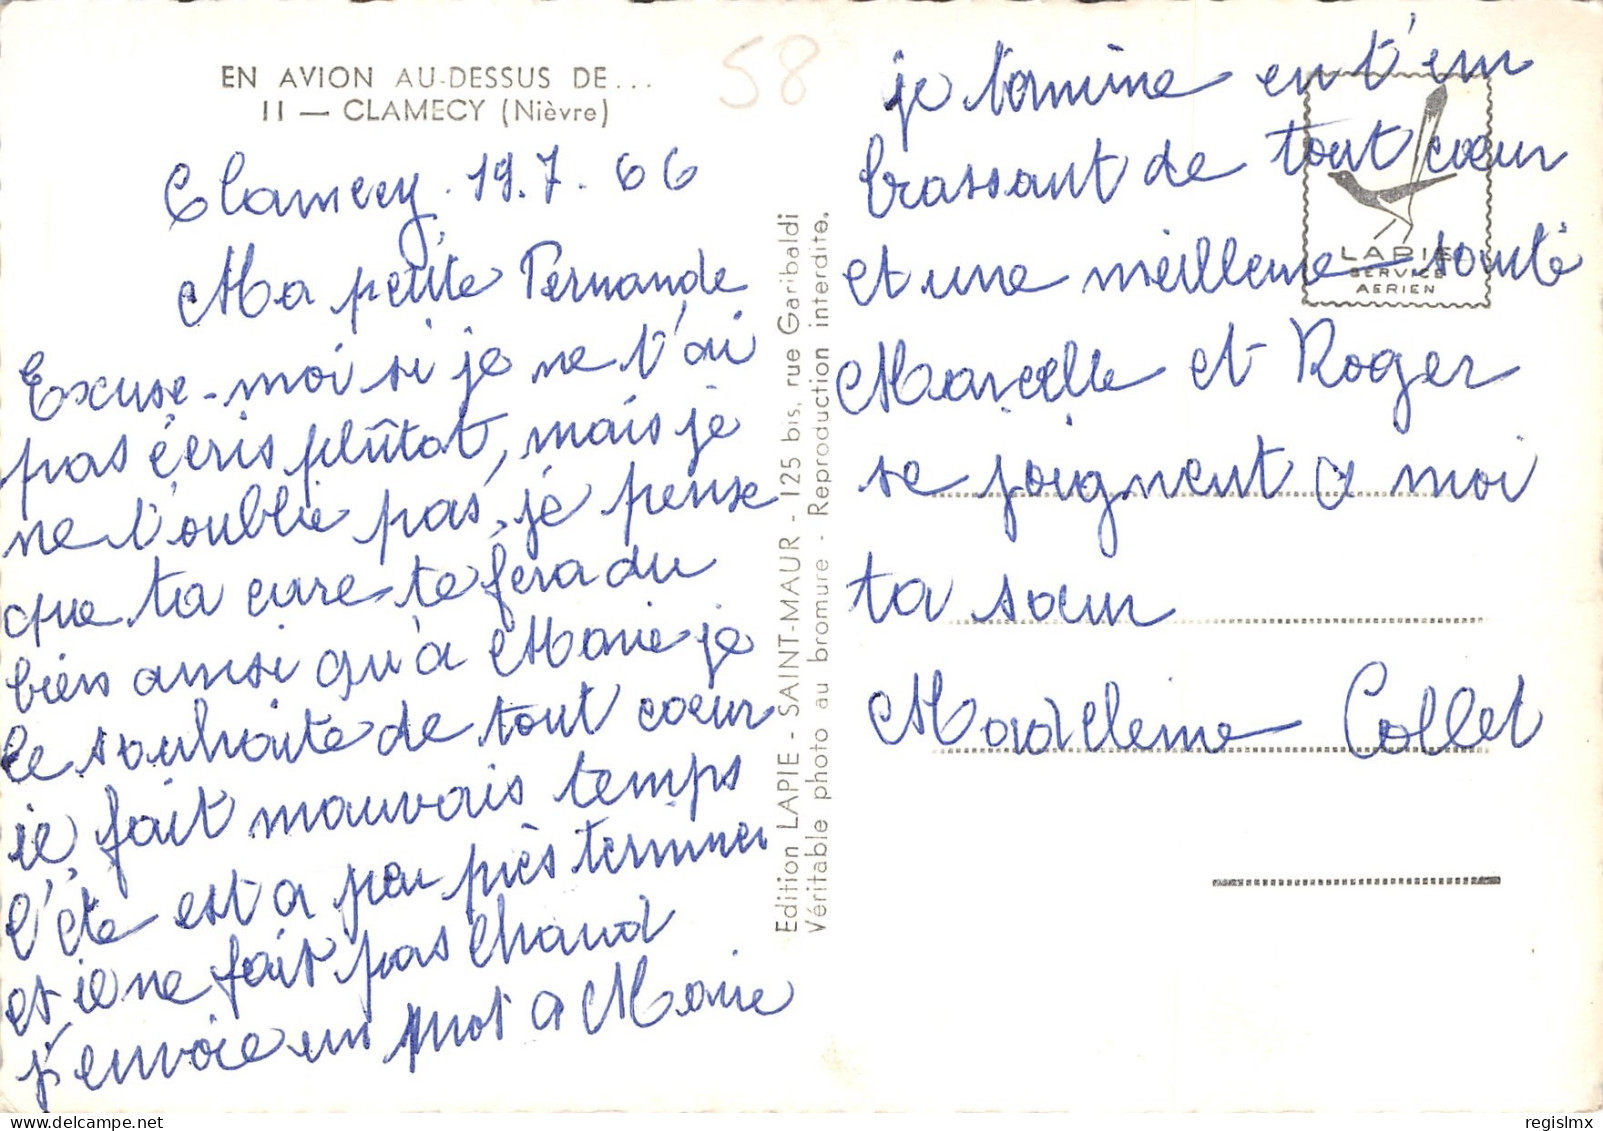 EN AVION AU-DESSUS DE...
11 — CLAMECY (Nièvre)
58
Clamecy. 19.7.66
Ma petite Fernande
Excuse-moi si je ne t'ai
pas écris plûtot, mais je
ne t'oublie pas, je pense
que ta cure te fera du
bien ainsi qu'à Marie je
le souhaite de tout coeur
ie fait mauvais temps
l'éte est a peu près terminer
et ie ne fait pas chaud
j'envoie un mot a Marie
Edition LAPIE - SAINT-MAUR - 125 bis, rue Garibaldi
Véritable photo au bromure - Reproduction interdite.
je termine en t'em
brassant de tout coeur
et une meilleure santé
Marcelle et Roger
se joignent a moi
ta soeur
Madeleine Collet
LAPIE
SERVICE
AERIEN
regislmx